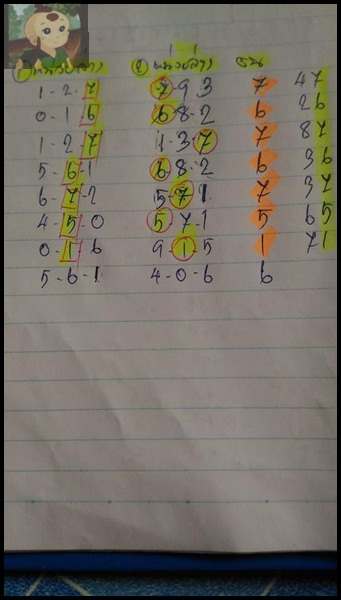 ① หน่วยล่าง ② หน่วยล่าง ชน
1-2-7 7-9 3 7 47
0-1-6 6-8-2 6 26
1-2-7 1-3-7 7 87
5-6-1 6-8-2 6 36
6-7-2 5-7-1 7 37
4-5-0 5-7-1 5 65
0-1-6 9-1-5 1 71
5-6-1 4-0-6 6